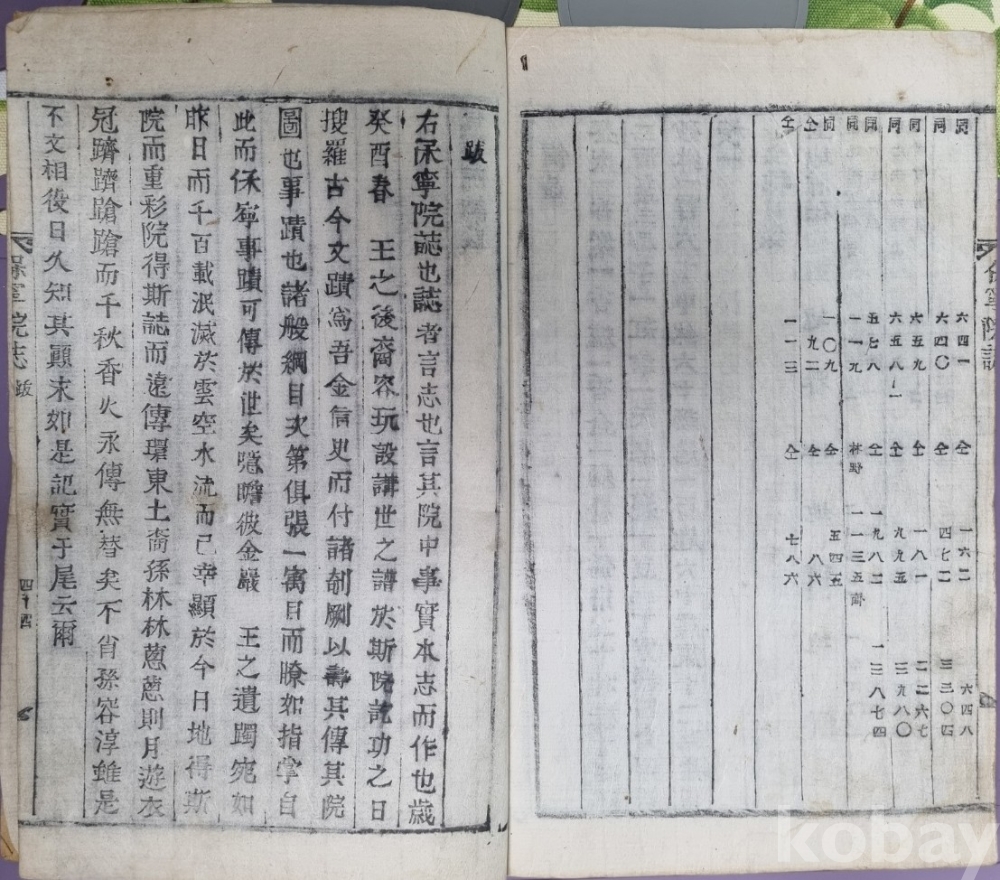 保寧院誌
同 六四一 仝 一六二 六四八
同 六四〇 仝 四七二 三三〇四
同 六五九 仝 一八一 二二六七
同 六五八ノ一 仝 九九五 三九八〇
同 五七八 仝 一九八二 一三八七四
同 一一九 林野 一一三五
同 一〇九 仝 五四五
仝 九二 仝 八六
仝 一一三 仝 七八六
跋
右保寧院誌也誌者言志也言其院中事實本志而作也歲
癸酉春 王之後裔容玩設講世之譜於斯院訖功之日
搜羅古今文蹟爲吾金信史而付諸剞劂以壽其傳其院
圖也事蹟也諸般綱目次第俱張一寓目而瞭如指掌自
此而保寧事蹟可傳於世矣噫瞻彼金巖 王之遺躅宛如
昨日而千百載泯滅於雲空水流而已幸顯於今日地得斯
院而重彩院得斯誌而遠傳環東土裔孫林林葱葱則月遊衣
冠躋躋蹌蹌而千秋香火永傳無替矣不肖孫容淳雖是
不文相役日久知其顚末如是記實于尾云爾
保寧院志 跋 四十四
kobay